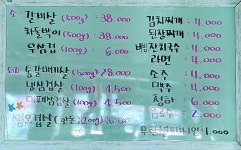 소 갈비살 (500g) 38.000
차돌박이 (500g) 38.000
육삼겹 (100g) 6.000
돼지 통갈매기살 (500g) 28.000
냉삼겹살 (100g) 4.500
대패삼겹살 (100g) 4.500
생오겹살 6.000
김치찌개 4.000
된장찌개 4.000
잔치국수 4.000
라면 4.000
소주 4.000
맥주 4.000
청하 6.000
음료수 2.000
1.000